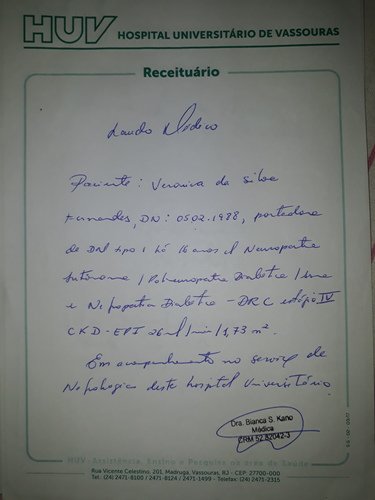 HUV HOSPITAL UNIVERSITÁRIO DE VASSOURAS
Receituário
Laudo Médico
Paciente: Veronica da Silva
Fernandes, DN: 05.02.1988, portadora
de DM tipo 1 há 16 anos c/ Neuropatia
autônoma / Polineuropatia Diabética /
e Nefropatia Diabética - DRC estágio IV
CKD-EPI 26ml/min/1,73 m².
Em acompanhamento no serviço de
Nefrologia deste hospital Universitário.
Dra. Bianca S. Kano
Médica
CRM 52.82042-3
HUV - Assistência, Ensino e Pesquisa na área de Saúde
Rua Vicente Celestino, 201, Madruga, Vassouras, RJ - CEP: 27700-000
Tel.: (24) 2471-8100 / 2471-8124 / 2471-1499 - Telefax: (24) 2471-2315